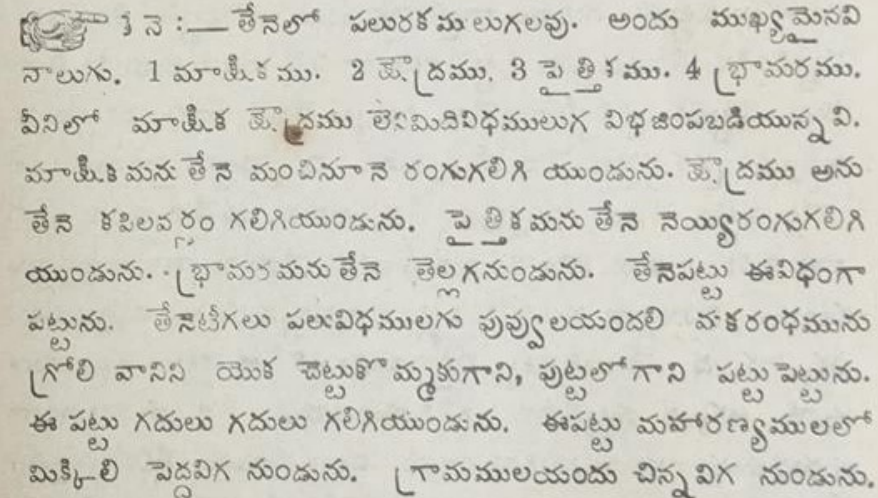 తేనె :— తేనెలో పలురకములుగలవు. అందు ముఖ్యమైనవి
నాలుగు. 1 మాక్షికము. 2 క్షౌద్రము. 3 పైత్తికము. 4 భ్రామరము.
వీనిలో మాక్షిక క్షౌద్రము లెనిమిదివిధములుగ విభజింపబడియున్నవి.
మాక్షికమను తేనె మంచినూనె రంగుగలిగి యుండును. క్షౌద్రము అను
తేనె కపిలవర్ణం గలిగియుండును. పైత్తికమను తేనె నెయ్యిరంగుగలిగి
యుండును. భ్రామరమను తేనె తెల్లగనుండును. తేనెపట్టు ఈవిధంగా
పట్టును. తేనెటీగలు పలువిధములగు పువ్వులయందలి మకరంధమును
గ్రోలి వానిని యొక చెట్టుకొమ్మకుగాని, పుట్టలోగాని పట్టు పెట్టును.
ఈ పట్టు గదులు గదులు గలిగియుండును. ఈపట్టు మహారణ్యములలో
మిక్కిలి పెద్దవిగ నుండును. గ్రామములయందు చిన్నవిగ నుండును.